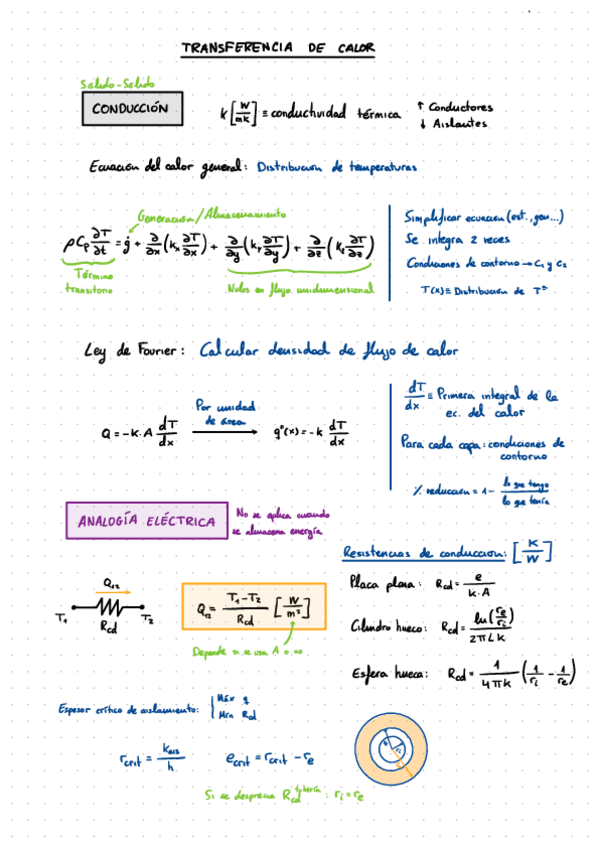 TRANSFERENCIA DE CALOR
Solido-Solido
CONDUCCIÓN
k [W/mk] ≡ conductividad térmica
↑ Conductores
↓ Aislantes
Ecuación del calor general: Distribución de temperaturas
Generación/Almacenamiento
ρCp ∂T/∂t = ġ + ∂/∂x (kx ∂T/∂x) + ∂/∂y (ky ∂T/∂y) + ∂/∂z (kz ∂T/∂z)
Término
transitorio
Nulos en flujo unidimensional
Simplificar ecuación (est., gen...)
Se integra 2 veces
Condiciones de contorno → C1 y C2
T(x) ≡ Distribución de Tª
Ley de Fourier: Calcular densidad de flujo de calor
Q = -k·A dT/dx
Por unidad
de área
q"(x) = -k dT/dx
dT/dx ≡ Primera integral de la
ec. del calor
Para cada capa: condiciones de
contorno
% reducción = 1 - lo que tengo/lo que tenía
ANALOGÍA ELÉCTRICA
No se aplica cuando
se almacena energía
Q12
T1
T2
Rcd
Q12 = T1-T2/Rcd [W/m²]
Depende si se usa A o no
Resistencias de conducción: [K/W]
Placa plana: Rcd = e/k·A
Cilindro hueco: Rcd = ln(re/ri)/2πLk
Esfera hueca: Rcd = 1/4πk (1/ri - 1/re)
Espesor crítico de aislamiento:
Máx q
Mín Rcd
rcrit = kais/h
ecrit = rcrit - re
Si se desprecia Rcd tubería: ri = re